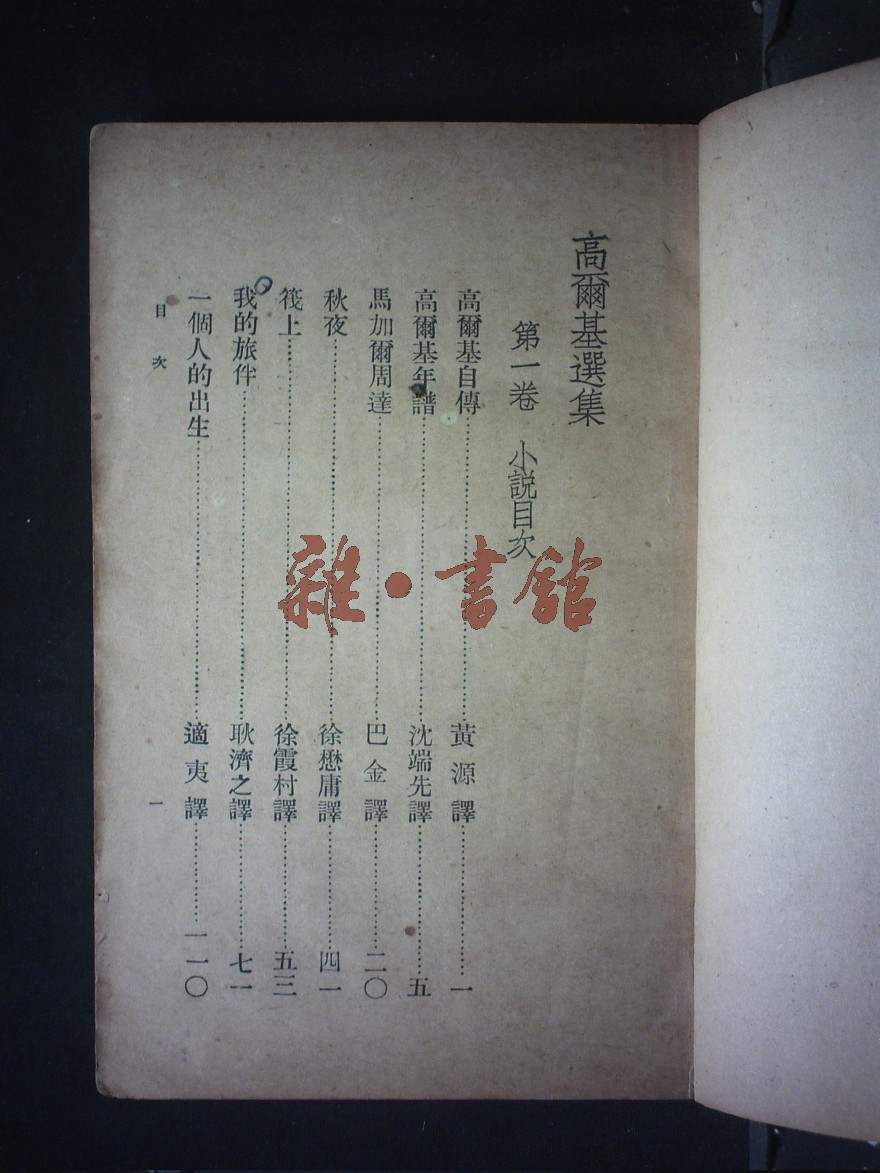 高爾基選集
第一卷 小説目次
高爾基自傳……黃源譯……一
高爾基年譜……沈端先譯……五
馬加爾周達……巴金譯……二〇
秋夜……徐懋庸譯……四一
筏上……徐霞村譯……五三
我的旅伴……耿濟之譯……七一
一個人的出生……適夷譯……一一〇
目次
一
雜·書館